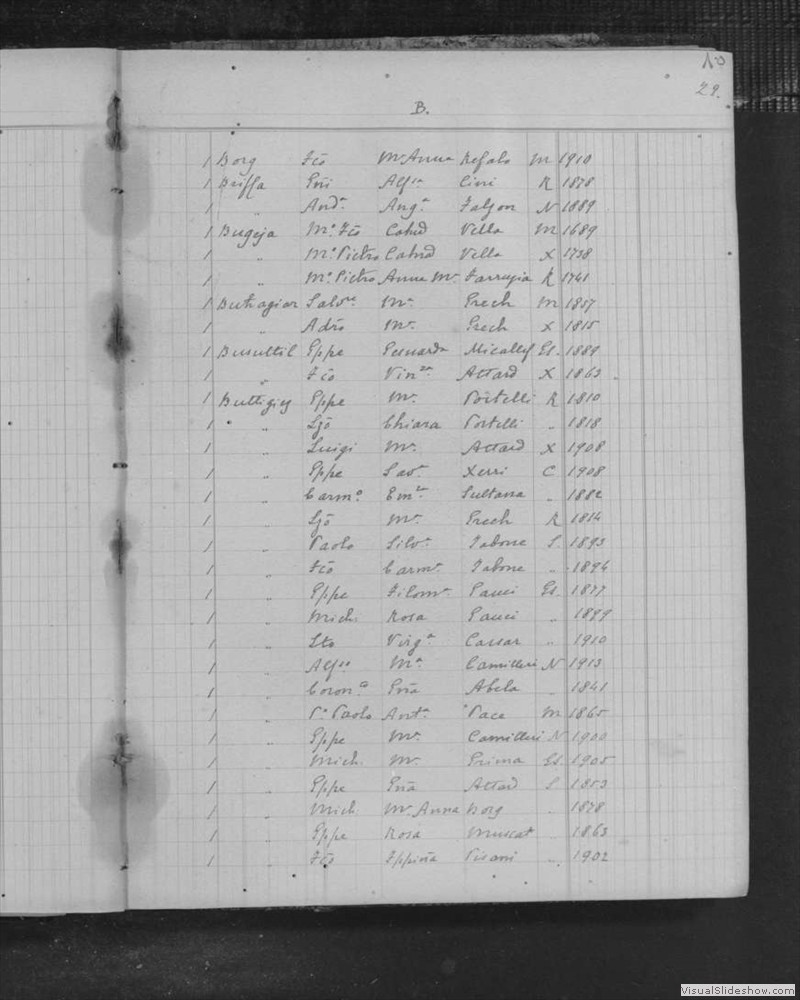 29.
B.
1 Borg Fcõ Mᵃ Anna Refalo M 1910
1 Briffa Gñi Alfˢᵃ Cini R 1878
1 " Andᵃ Angᵃ Falzon N 1889
1 Bugeja Mᵒ Fcõ Catnã Vella M 1689
1 " Mᵒ Pietro Catnã Vella X 1738
1 " Mᵒ Pietro Anna Mᵃ Farrugia R 1741
1 Buhagiar Salvʳᵉ Mᵃ Grech M 1857
1 " Adrõ Mᵃ Grech X 1815
1 Busuttil Gppe Micallef Es. 1889
1 " Fcõ Vinᶻᵃ Attard X 1863
1 Buttigieg Gppe Mᵃ Portelli R 1810
1 " Ljõ Chiara Portelli " 1818
1 " Luigi Mᵃ Attard X 1908
1 " Gppe Savᵃ Xerri C 1908
1 " Carmᵒ Emᶻᵃ Sultana " 1882
1 " Ljõ Mᵃ Grech R 1814
1 " Paolo Silvᵃ Tabone S. 1893
1 " Fcõ Carmᵃ Tabone " 1894
1 " Gppe Filomᵃ Gauci Es. 1877
1 " Mich. Rosa Gauci " 1899
1 " Sto Virgᵃ Cassar " 1910
1 " Alfˢᵒ Mᵃ Camilleri N 1913
1 " Coronᵗᵒ Gña Abela " 1841
1 " Pᵒ Paolo Antᵃ Pace M 1865
1 " Gppe Mᵃ Camilleri N 1900
1 " Mich. Mᵃ Grima Es. 1905
1 " Gppe Gña Attard S 1853
1 " Mich. Mᵃ Anna Borg " 1878
1 " Gppe Rosa Muscat " 1863
1 " Fcõ Gppiña Pisani " 1902
VisualSlideshow.com